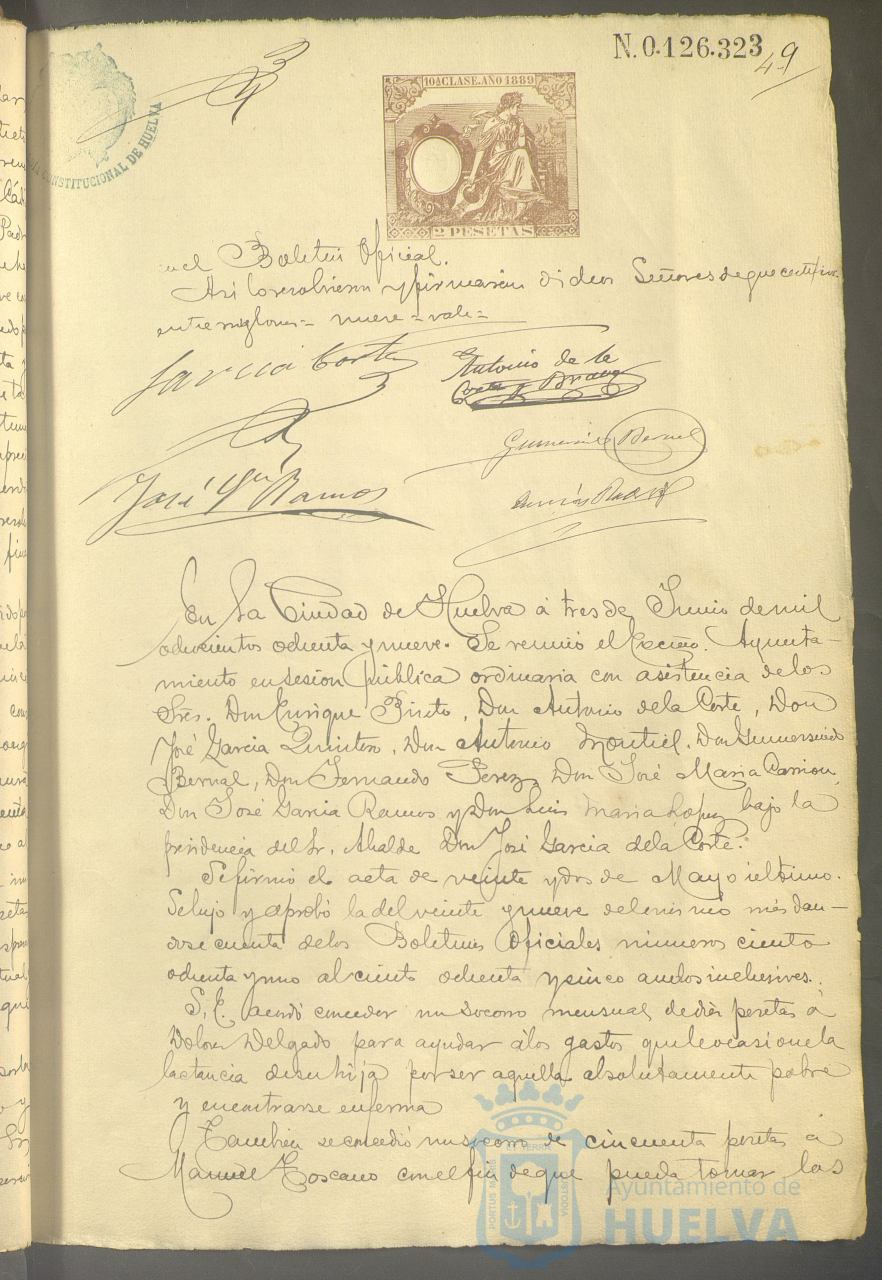 N.0.126.323
49
CONSTITUCIONAL DE HUELVA
10ª CLASE. AÑO 1889
2 PESETAS
en el Boletin Oficial.
Asi lo resolvieron y firmarán dichos Señores de que certifico.
entre renglones = nueve = vale =
Garcia Corte
Antonio de la
Corte
Gumersindo Bernal
José Gª Ramos
En la Ciudad de Huelva á tres de Junio de mil
ochocientos ochenta y nueve. Se reunió el Excmo. Ayunta-
miento en sesion pública ordinaria con asistencia de los
Sres. Don Enrique Prieto, Don Antonio de la Corte, Don
José Garcia Quintero, Don Antonio Montiel, Don Gumersindo
Bernal, Don Fernando Perez, Don José Maria Carrion,
Don José Garcia Ramos y Don Luis Maria Lopez bajo la
presidencia del Sr. Alcalde Don José Garcia de la Corte.
Se firmó el acta de veinte y dos de Mayo último.
Se leyó y aprobó la del veinte y nueve del mismo mes dan-
dose cuenta de los Boletines Oficiales números ciento
ochenta y uno al ciento ochenta y cinco ambos inclusives.
S. E. acordó conceder un socorro mensual de diez pesetas á
Dolores Delgado para ayudar á los gastos que le ocasione la
lactancia de su hija por ser aquella absolutamente pobre
y encontrarse enferma
Tambien se concedió un socorro de cincuenta pesetas á
Manuel Toscano con el fin de que pueda tomar los
PORTUS MARIS
ET TERRÆ
CUSTODIA
Ayuntamiento de
HUELVA